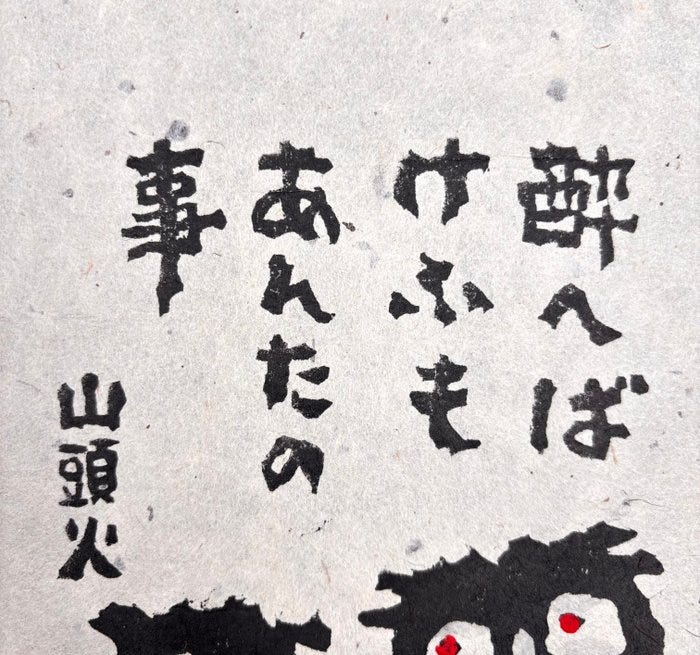 酔へば
けふも
あんたの
事
山頭火